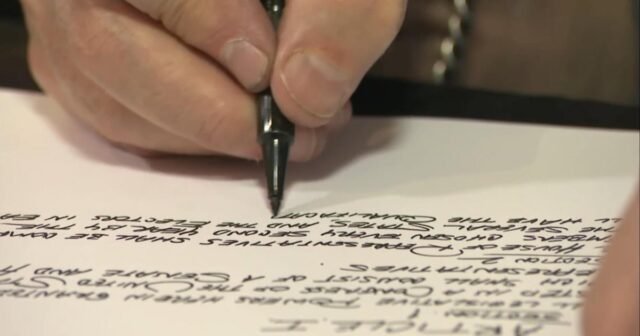 ARTICLE. I
SECTION 1.
LEGISLATIVE POWERS HEREIN GRANTE
TED IN A CONGRESS OF THE UNITED
SHALL CONSIST OF A SENATE AND H
REPRESENTATIVES
SECTION 2
HOUSE OF REPRESENTATIVES SHALL BE COMP
MBERS CHOSEN EVERY SECOND YEAR BY
THE SEVERAL STATES, AND THE ELECTORS IN EA
LL HAVE THE QUALIFICAT